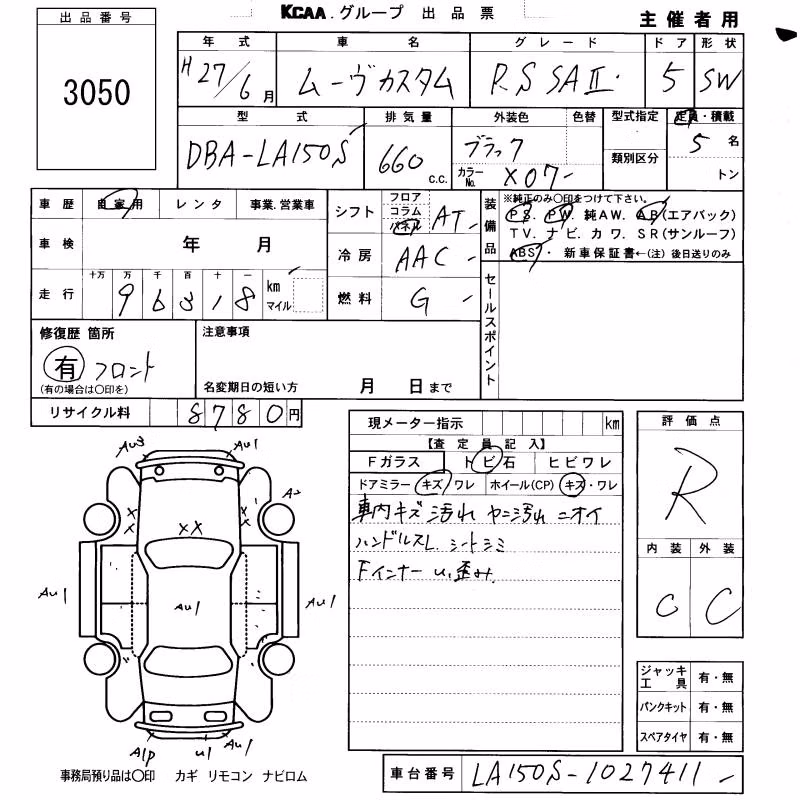 KCAA.グループ 出品票
主催者用
出品番号
3050
年式 車名 グレード ドア 形状
H27/6月 ムーヴカスタム RS SAⅡ 5 SW
型式 排気量 外装色 色替 型式指定 定員・積載
DBA-LA150S 660 c.c. ブラック 類別区分 5名
カラーNo. X07 トン
車歴 自家用 レンタ 事業.営業車
シフト フロア コラム パネル AT
装備品 ※純正のみ〇印をつけて下さい。
PS. PW. 純AW. AB(エアバック)
TV. ナビ. カワ. SR(サンルーフ)
ABS・ 新車保証書←(注) 後日送りのみ
車検 年 月
冷房 AAC
走行 十万 万 千 百 十 一
96318 km マイル
燃料 G
セールスポイント
修復歴 箇所
有 フロント
(有の場合は〇印を)
注意事項
名変期日の短い方 月 日まで
リサイクル料 8780円
現メーター指示 km
【査定員記入】
Fガラス トビ石 ヒビワレ
ドアミラー キズ・ワレ ホイール(CP) キズ・ワレ
車内キズ 汚れ ヤニ汚れ ニオイ
ハンドルスレ シートシミ
Fインナー u,歪み
評価点
R
内装 外装
C C
Au3 Au1
A2
XX
Au1 Au1 Au1
A1p u1 Au1
ジャッキ工具 有・無
パンクキット 有・無
スペアタイヤ 有・無
事務局預り品は〇印 カギ リモコン ナビロム
車台番号 LA150S-1027411